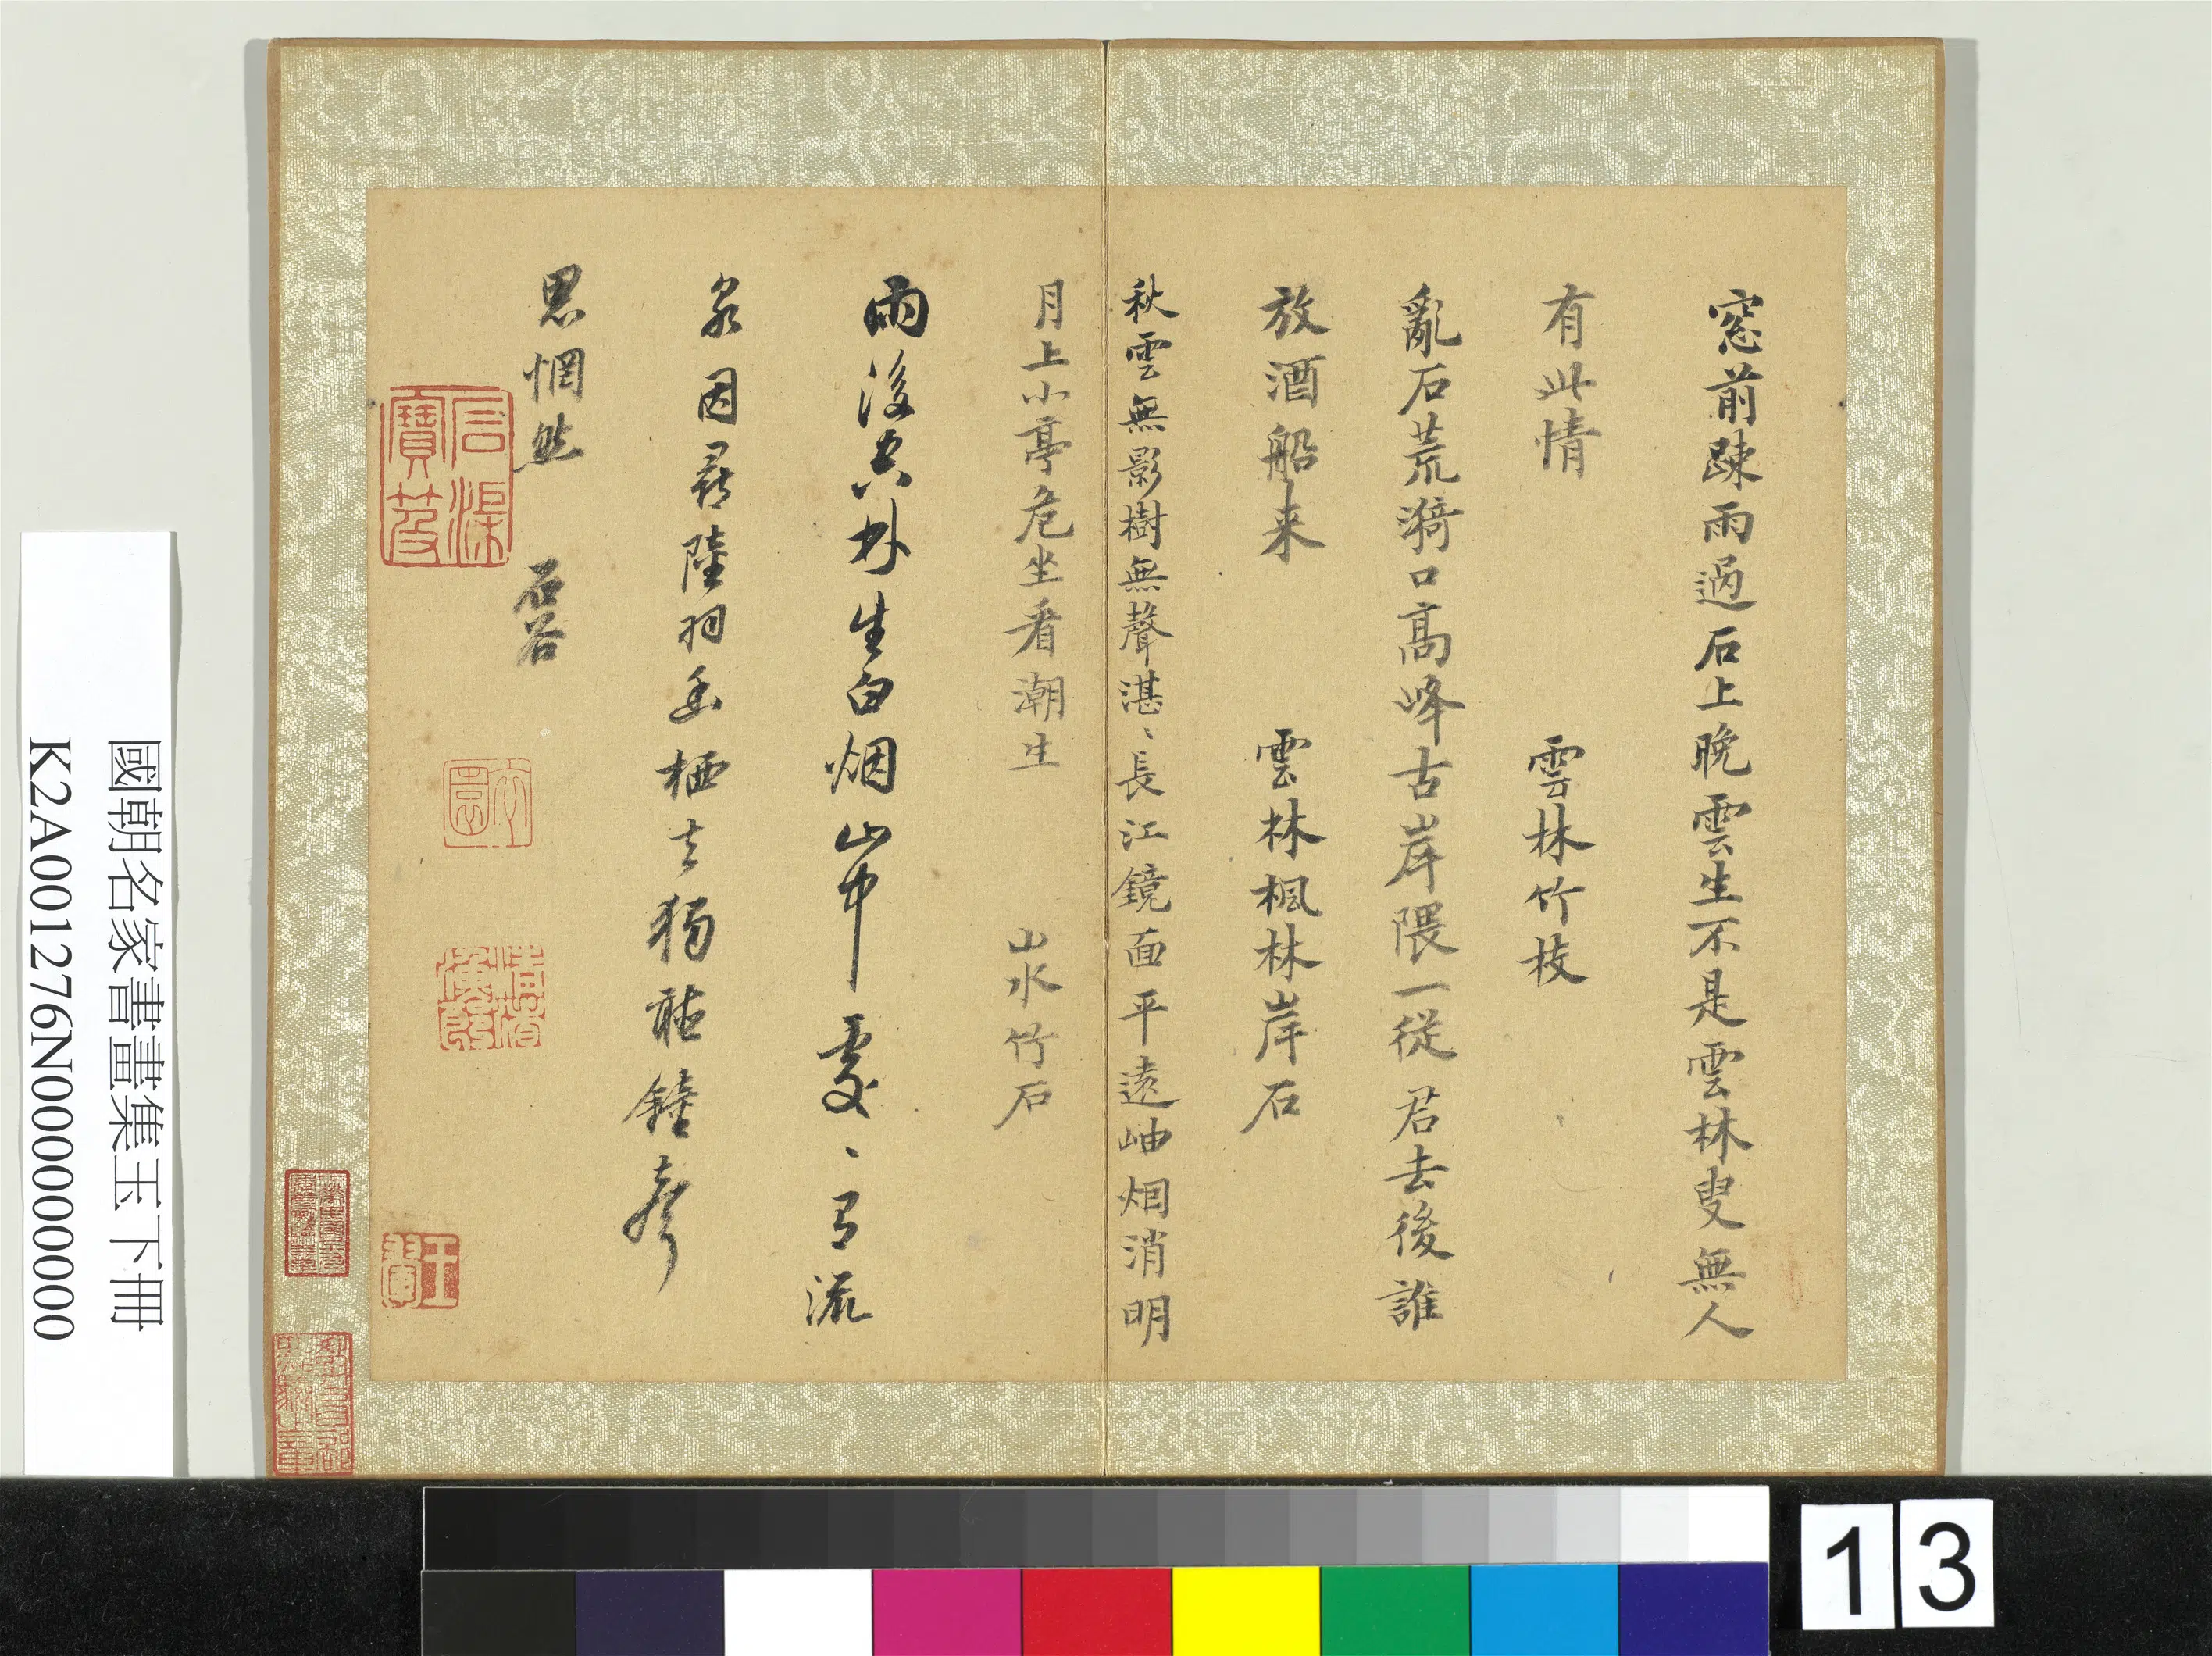 窓前踈雨過石上晩雲生不是雲林叟無人
有此情
雲林竹枝
亂石荒漪口高峰古岸隈一從君去後誰
放酒船来
雲林楓林岸石
秋雲無影樹無聲湛〻長江鏡面平遠岫烟消明
月上小亭危坐看潮生
山水竹石
雨後空林生白烟山中處〻有流
泉因尋陸羽幽栖去獨聽鐘聲
思惘然
石谷
石渠
寶笈
王翬
國朝名家書畫集玉下冊
K2A001276N000000000
13